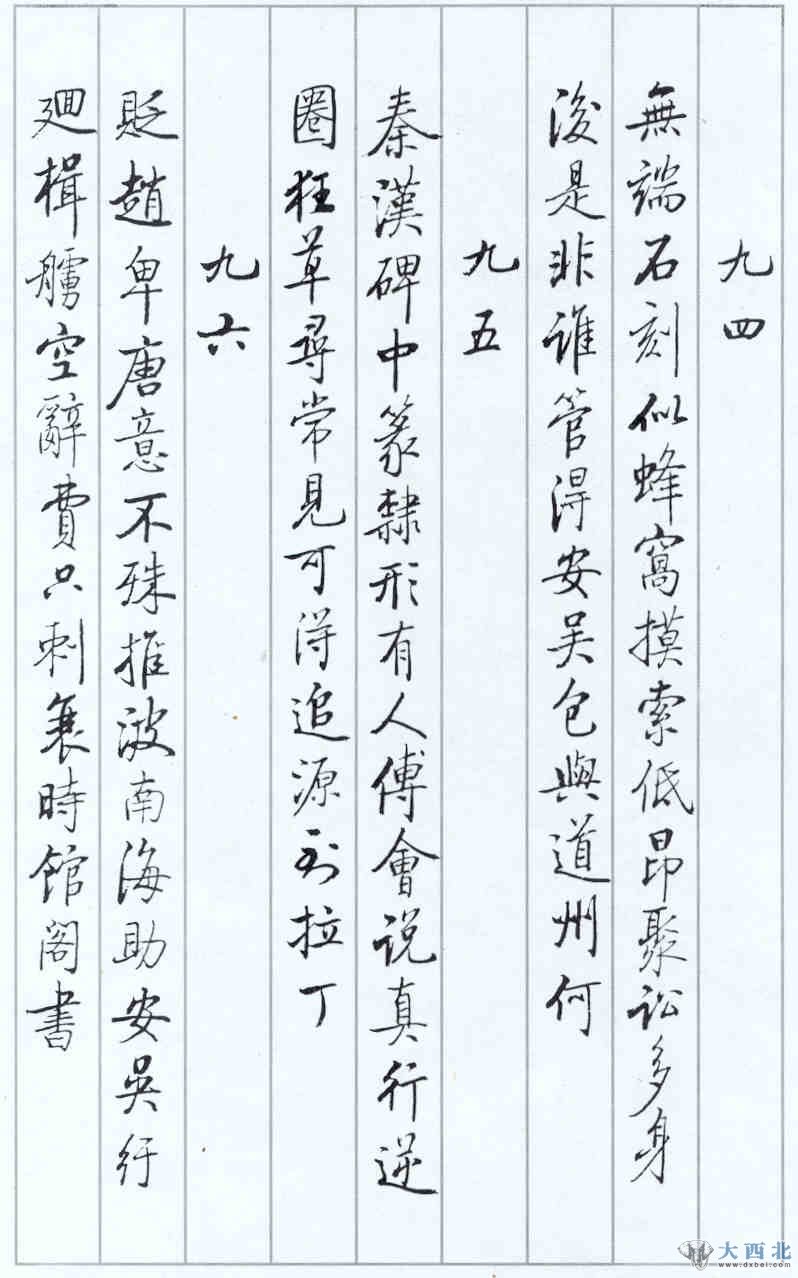 九四
無端石刻似蜂窩摸索低昂聚訟多身
後是非誰管得安吴包與道州何
九五
秦漢碑中篆隸形有人傅會説真行逆
圈狂草尋常見可得追源到拉丁
九六
貶趙卑唐意不殊推波南海助安吴行
廻楫艣空辭費只刺衰時館閣書
大西北
www.dxbei.com